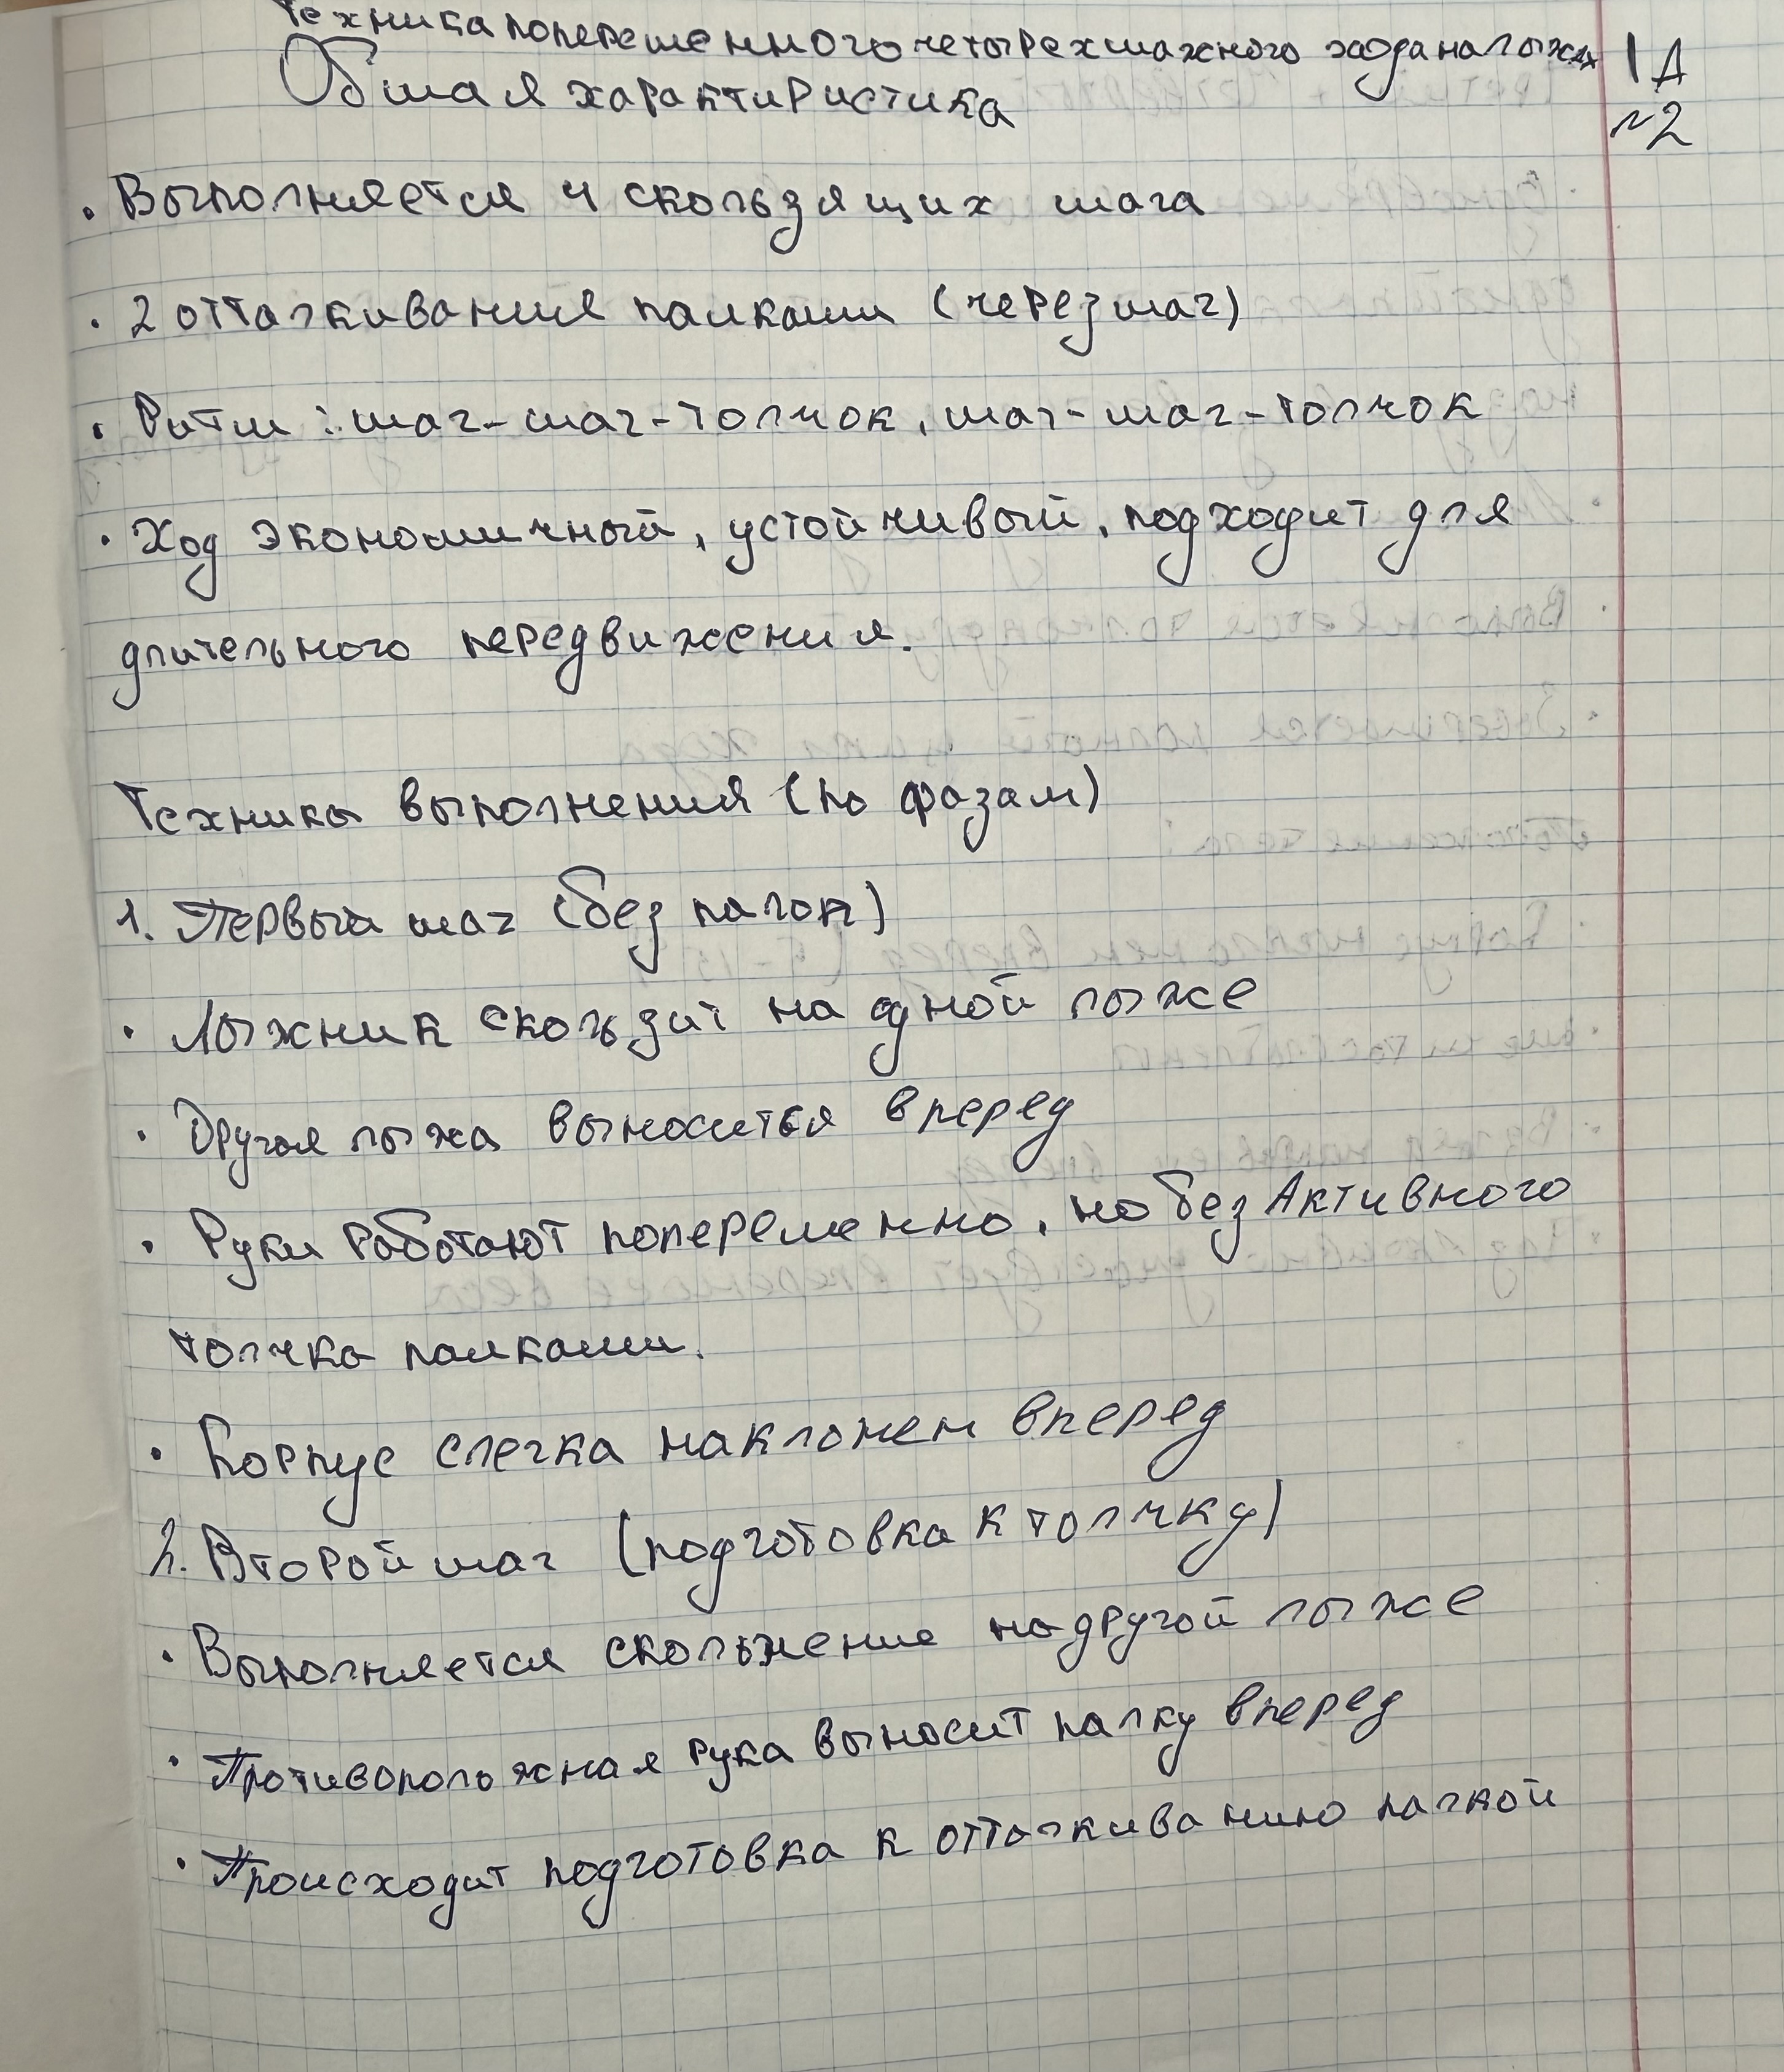 Техника попеременного четырехшажного хода на лыжах
1 Д
Общая характиристика
№2
• Выполняется 4 скользящих шага
• 2 отталкивания палками (через шаг)
• Ритм: шаг-шаг-толчок, шаг-шаг-толчок
• Ход экономичный, устойчивый, подходит для
длительного передвижения.
Техника выполнения (по фазам)
1. Первый шаг (без палок)
• Лыжник скользит на одной лыже
• Другая лыжа выноситься вперед
• Руки работают попеременно, но без Активного
толчка палками.
• Корпус слегка наклонен вперед
2. Второй шаг (подготовка к толчку)
• Выполняется скольжение на другой лыже
• Противоположная рука выносит палку вперед
• Происходит подготовка к отталкиванию палкой